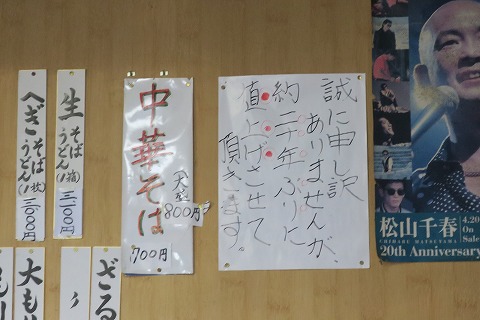 誠に申し訳
ありませんが、
約二十年ぶりに
値上げさせて
頂きます。
中華そば
(大盛
800円)
700円
生そば
うどん(1箱)
三一〇〇円
へぎそば
うどん(1枚)
三〇〇〇円
ざる
大も
松山千春
CHIHARU MATSUYAMA
20th Anniversary
4.20
On
Sale